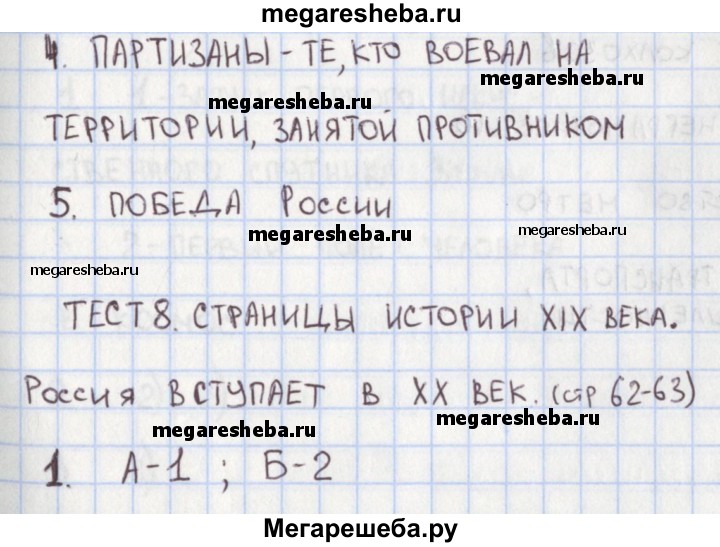 megaresheba.ru
4. ПАРТИЗАНЫ - ТЕ, КТО ВОЕВАЛ НА
megaresheba.ru
megaresheba.ru
ТЕРРИТОРИИ, ЗАНЯТОЙ ПРОТИВНИКОМ
5. ПОБЕДА РОССИИ
megaresheba.ru
megaresheba.ru
megaresheba.ru
ТЕСТ 8. СТРАНИЦЫ ИСТОРИИ XIX ВЕКА.
РОССИЯ ВСТУПАЕТ В XX ВЕК. (стр 62-63)
megaresheba.ru
megaresheba.ru
1. А-1 ; Б-2
Мегарешеба.ру